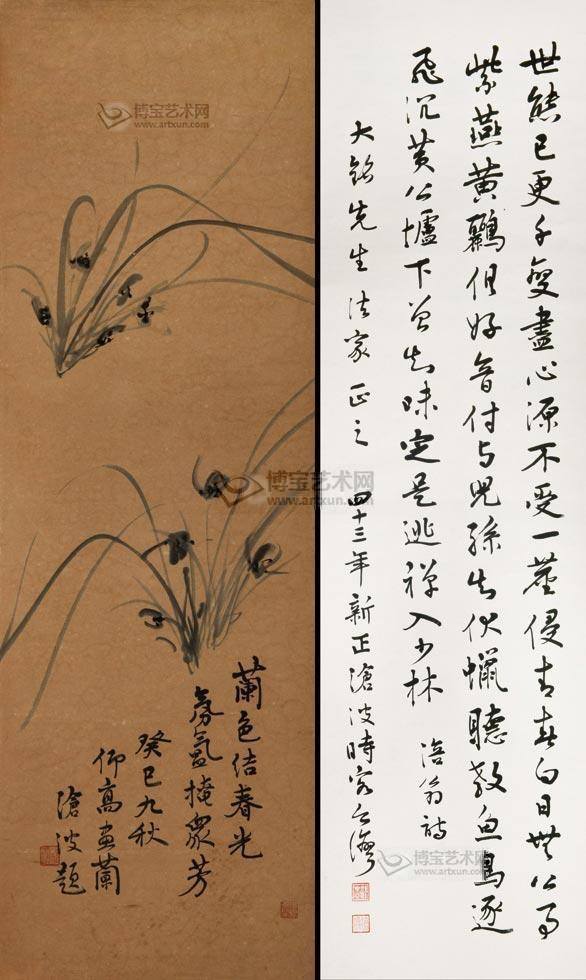 世態已更千變盡心源不受一塵侵青春白日無公事
紫燕黃鸝俱好音付与兒孫知伏蠟聽教魚鳥逐
飛沉黃公壚下曾知味定是逃禪入少林 涪翁詩
大銘先生法家正之 四十三年新正滄波時客台灣
蘭色結春光
氛氳掩眾芳
癸巳九秋
仰高畫蘭
滄波題
博宝艺术网
www.artxun.com
博宝艺术网
www.artxun.com
博宝艺术网
www.artxun.com